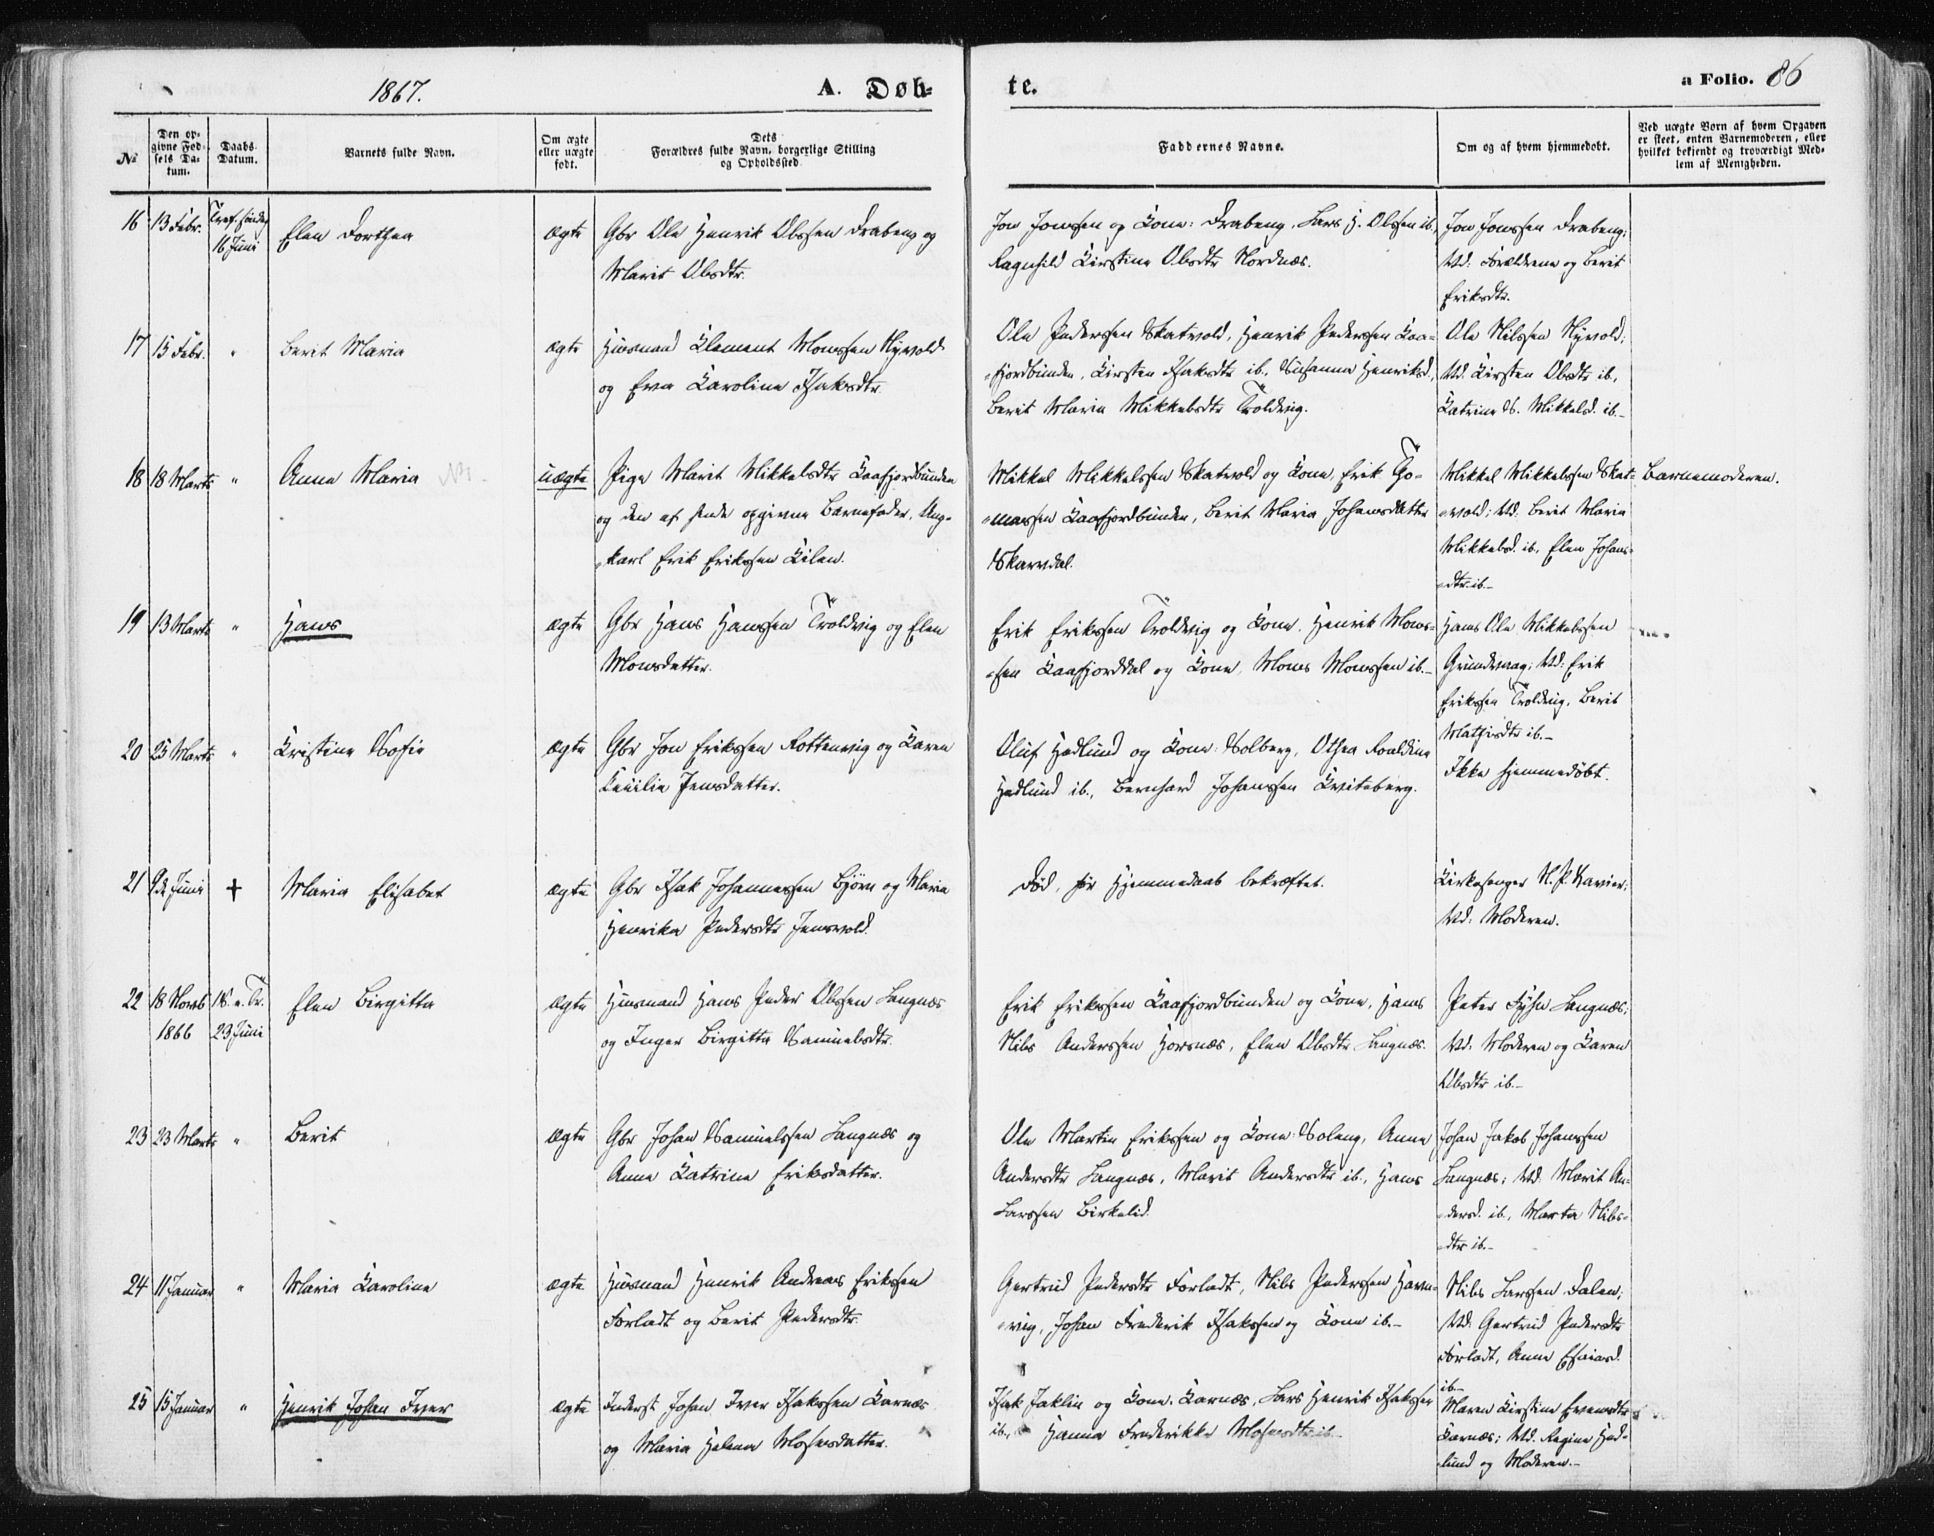 1867.
A. Døb-
te.
a Folio. 86
No
Den op-
givne Fød-
sels Da-
tum.
Daabs
Datum.
Barnets fulde Navn.
Om ægte
eller uægte
født.
Dets
Forældres fulde Navn, borgerlige Stilling
og Opholdssted
Faddernes Navne.
Om og af hvem hjemmedøbt.
Ved uægte Børn af hvem Opgaven
er skeet, enten Barnemoderen, eller
hvilket bekjendt og troværdigt Med-
lem af Menigheden.
16 13 Febr. Tref. søndag
16 Juni
Elen Dorthea
ægte
Gbr Ole Henrik Olssen Drabeng og
Marit Olsdtr.
Jon Jonssen og Kone: Drabeng, Lars J. Olssen ib.,
Ragnhild Kirstine Olsdtr Nordnæs.
Jon Jonssen Drabeng;
Vid. Forældrene og Berit
Eriksdtr.
17 15 Febr. "
Berit Maria
ægte
Husmand Klement Monssen Nyvold
og Eva Karoline Isaksdtr
Ole Pederssen Skatvold, Henrik Pederssen Kaa-
fjordbunden, Kirsten Isaksdtr ib., Susanna Henriksd.,
Berit Maria Mikkelsdtr Troldvig.
Ole Nilssen Nyvold;
Vid. Kirsten Olsdtr ib.,
Katrine S. Mikkelsd. ib.-
18 18 Marts "
Anne Maria
uægte
Pige Marit Mikkelsdtr Kaafjordbunden
og den af hende opgivne Barnefader, Ung-
karl Erik Erikssen Kilen.
Mikkel Mikkelssen Skatvold og Kone, Erik To-
massen Kaafjordbunden, Berit Maria Johansdatter
Skarvdal.
Mikkel Mikkelssen Skat-
vold; Vid. Berit Maria
Mikkelsd. ib., Elen Johans-
dtr ib.-
Barnemoderen.
19 13 Marts "
Hans
ægte
Gbr Hans Hanssen Troldvig og Elen
Monsdatter.
Erik Erikssen Troldvig og Kone, Henrik Mons-
sen Kaafjorddal og Kone, Mons Monssen ib.-
Hans Ole Mikkelssen
Grundvaag; Vid: Erik
Erikssen Troldvig, Berit
Mathisdtr ib.-
20 25 Marts "
Kristine Sofie
ægte
Gbr Jon Erikssen Rottenvig og Karen
Cecilie Jensdatter.
Oluf Hedlund og Kone: Solberg, Othea Roaldine
Hedlund ib., Bernhard Johanssen Kviteberg.
Ikke hjemmedøbt.
21 9de Juni +
Maria Elisabet
ægte
Gbr Isak Johannessen Bjørn og Maria
Henrika Pedersdtr Jensvold.
Død, før Hjemmedaab bekræftet.
Kirkesanger N. P. Xavier;
Vid. Moderen.
22 18 Novb
1866
1S. e. Tr.
23 Juni
Elen Birgitta
ægte
Husmand Hans Peder Olssen Langnæs
og Inger Birgitta Samuelsdtr.
Erik Erikssen Kaafjordbunden og Kone, Hans
Nils Anderssen Horsnæs, Elen Olsdtr Langnæs.
Peter Fyhn Langnæs;
Vid. Moderen og Karen
Olsdtr ib.-
23 23 Marts "
Berit
ægte
Gbr Johan Samuelssen Langnæs og
Anne Katrine Eriksdatter.
Ole Martin Erikssen og Kone: Soleng, Anne
Andersdtr Langnæs, Marit Andersdtr ib., Hans
Larssen Birkelid.
Johan Jakob Johanssen
Langnæs; Vid. Marit An-
dersd. ib., Marta Nils-
dtr ib.-
24 11 Januar "
Maria Karoline
ægte
Husmand Henrik Andreas Erikssen
Forladt og Berit Pedersdtr
Gertrud Pedersdtr Forladt, Nils Pederssen Havn-
vig, Johan Frederik Isakssen og Kone ib.-
Nils Larssen Dalen;
Vid: Gertrud Pedersdtr
Forladt, Anne Esaiasd.
ib.-
25 15 Januar "
Henrik Johan Iver
ægte
Inderst Johan Iver Isakssen Karnæs
og Maria Helena Mosesdatter.
Isak Jaklin og Kone. Karnæs, Lars Henrik Isakssen
ib., Hanna Frederikke Mosesdtr ib.
Maren Kirstine Evensdtr
Karnæs; Vid. Regine Hed-
lund og Moderen.-